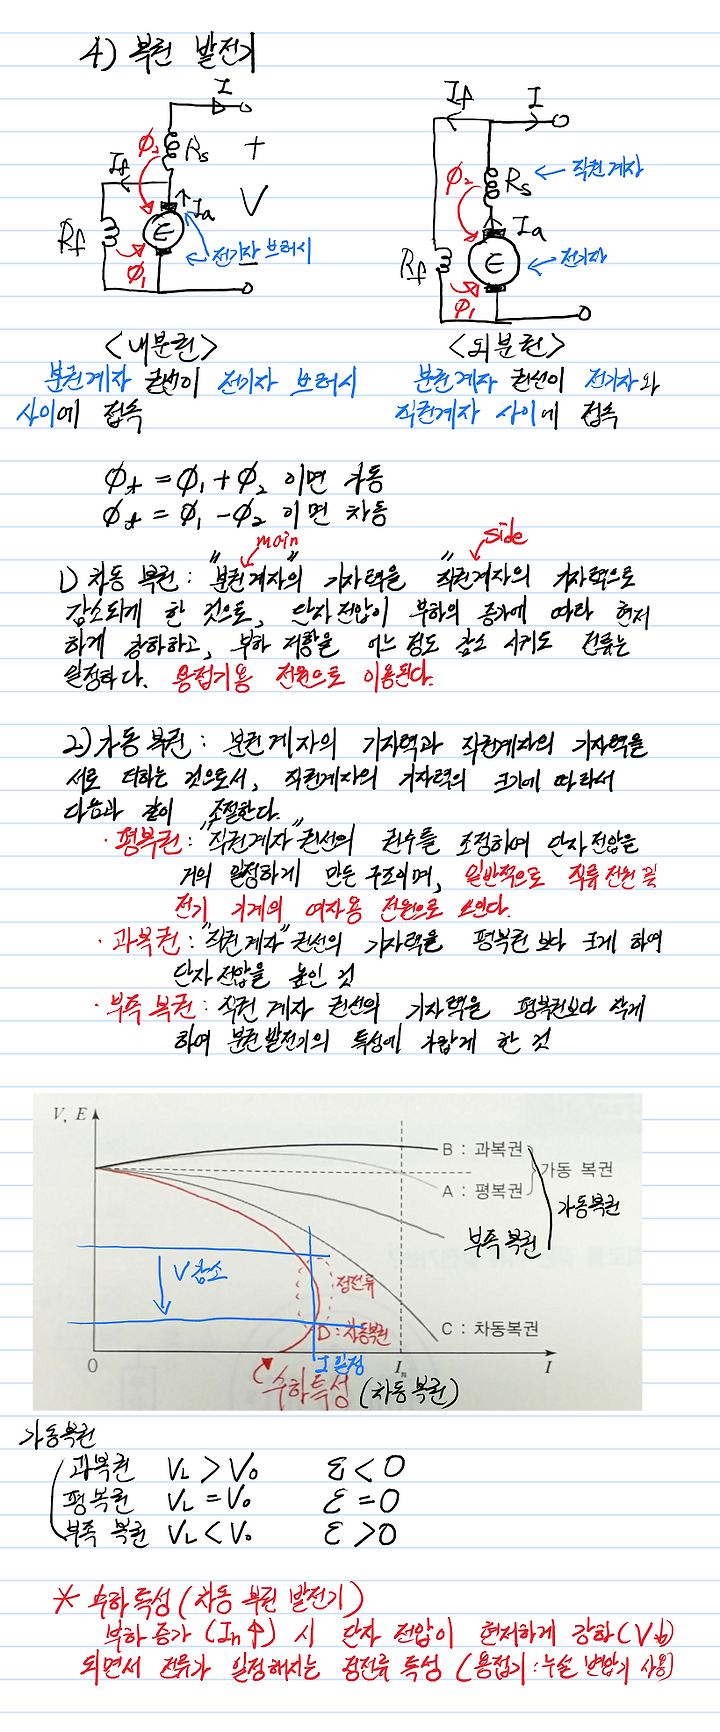 4) 복권 발전기
I
If
Φ2
Rs
+
Ia
V
Rf
E
Φ1
전기자 브러시
<내분권>
분권계자 권선이 전기자 브러시
사이에 접속
If
I
Φ2
Rs
직권계자
Ia
Rf
E
전기자
Φ1
<외분권>
분권계자 권선이 전기자와
직권계자 사이에 접속
Φt = Φ1 + Φ2 이면 가동
Φt = Φ1 - Φ2 이면 차동
main
side
1) 차동 복권 : "분권계자"의 기자력을 "직권계자의 기자력으로
감소되게 한 것으로, 단자전압이 부하의 증가에 따라 현저
하게 강하하고, 부하 저항을 어느 정도 감소 시켜도 전류는
일정하다. 용접기용 전원으로 이용된다.
2) 가동복권 : 분권계자의 기자력과 직권계자의 기자력을
서로 더하는 것으로서, 직권계자의 기자력의 크기에 따라서
다음과 같이 조절한다.
· 평복권 : "직권계자" 권선의 권수를 조정하여 단자전압을
거의 일정하게 만든 구조이며, 일반적으로 직류전원 및
전기 기계의 여자용 전원으로 쓰인다.
· 과복권 : "직권계자" 권선의 기자력을 평복권 보다 크게 하여
단자 전압을 높인 것
· 부족 복권 : 직권 계자 권선의 기자력을 평복권보다 작게
하여 분권발전기의 특성에 가깝게 한 것
V, E
B : 과복권
가동 복권
A : 평복권
가동복권
부족복권
V감소
정전류
D : 차동복권
C : 차동복권
0
I 일정
In
I
수하특성 (차동복권)
가동복권
과복권 VL > V0 ε < 0
평복권 VL = V0 ε = 0
부족 복권 VL < V0 ε > 0
* 수하 특성 (차동 복권 발전기)
부하 증가 (In↑) 시 단자 전압이 현저하게 강하(V↓)
되면서 전류가 일정해지는 정전류 특성 (용접기 : 누설 변압기 사용)